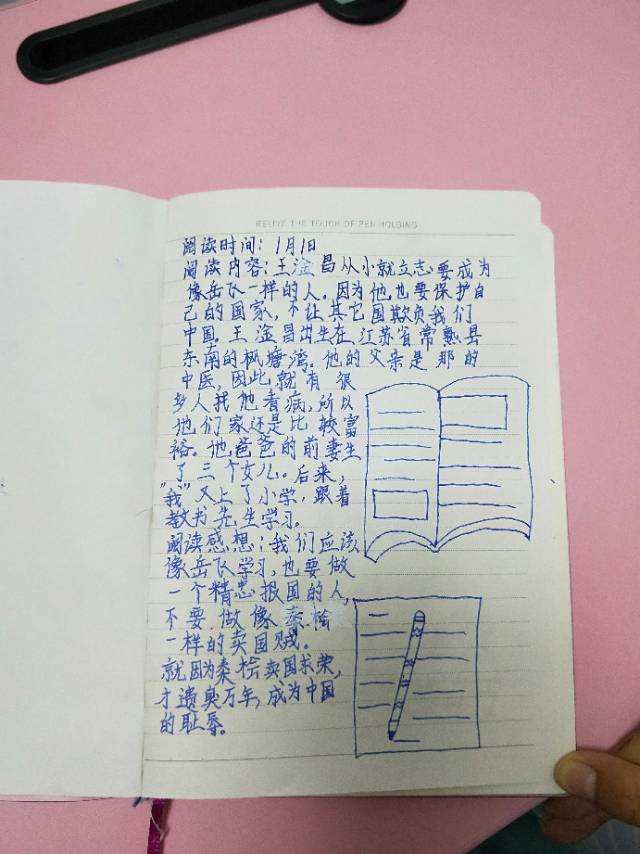 RELIVE THE TOUCH OF PEN HOLDING
阅读时间：1月1日
阅读内容：王淦昌从小就立志要成为
像岳飞一样的人。因为他也要保护自
己的国家，不让其它国欺负我们
中国。王淦昌出生在江苏省常熟县
东南的枫塘湾。他的父亲是那的
中医，因此就有很
多人找他看病，所以
他们家还是比较富
裕。他爸爸的前妻生
了三个女儿。后来，
"我"又上了小学，跟着
教书先生学习。
阅读感想：我们应该
像岳飞学习，也要做
一个精忠报国的人，
不要做像秦桧
一样的卖国贼。
就因为秦桧卖国求荣，
才遗臭万年，成为中国
的耻辱。